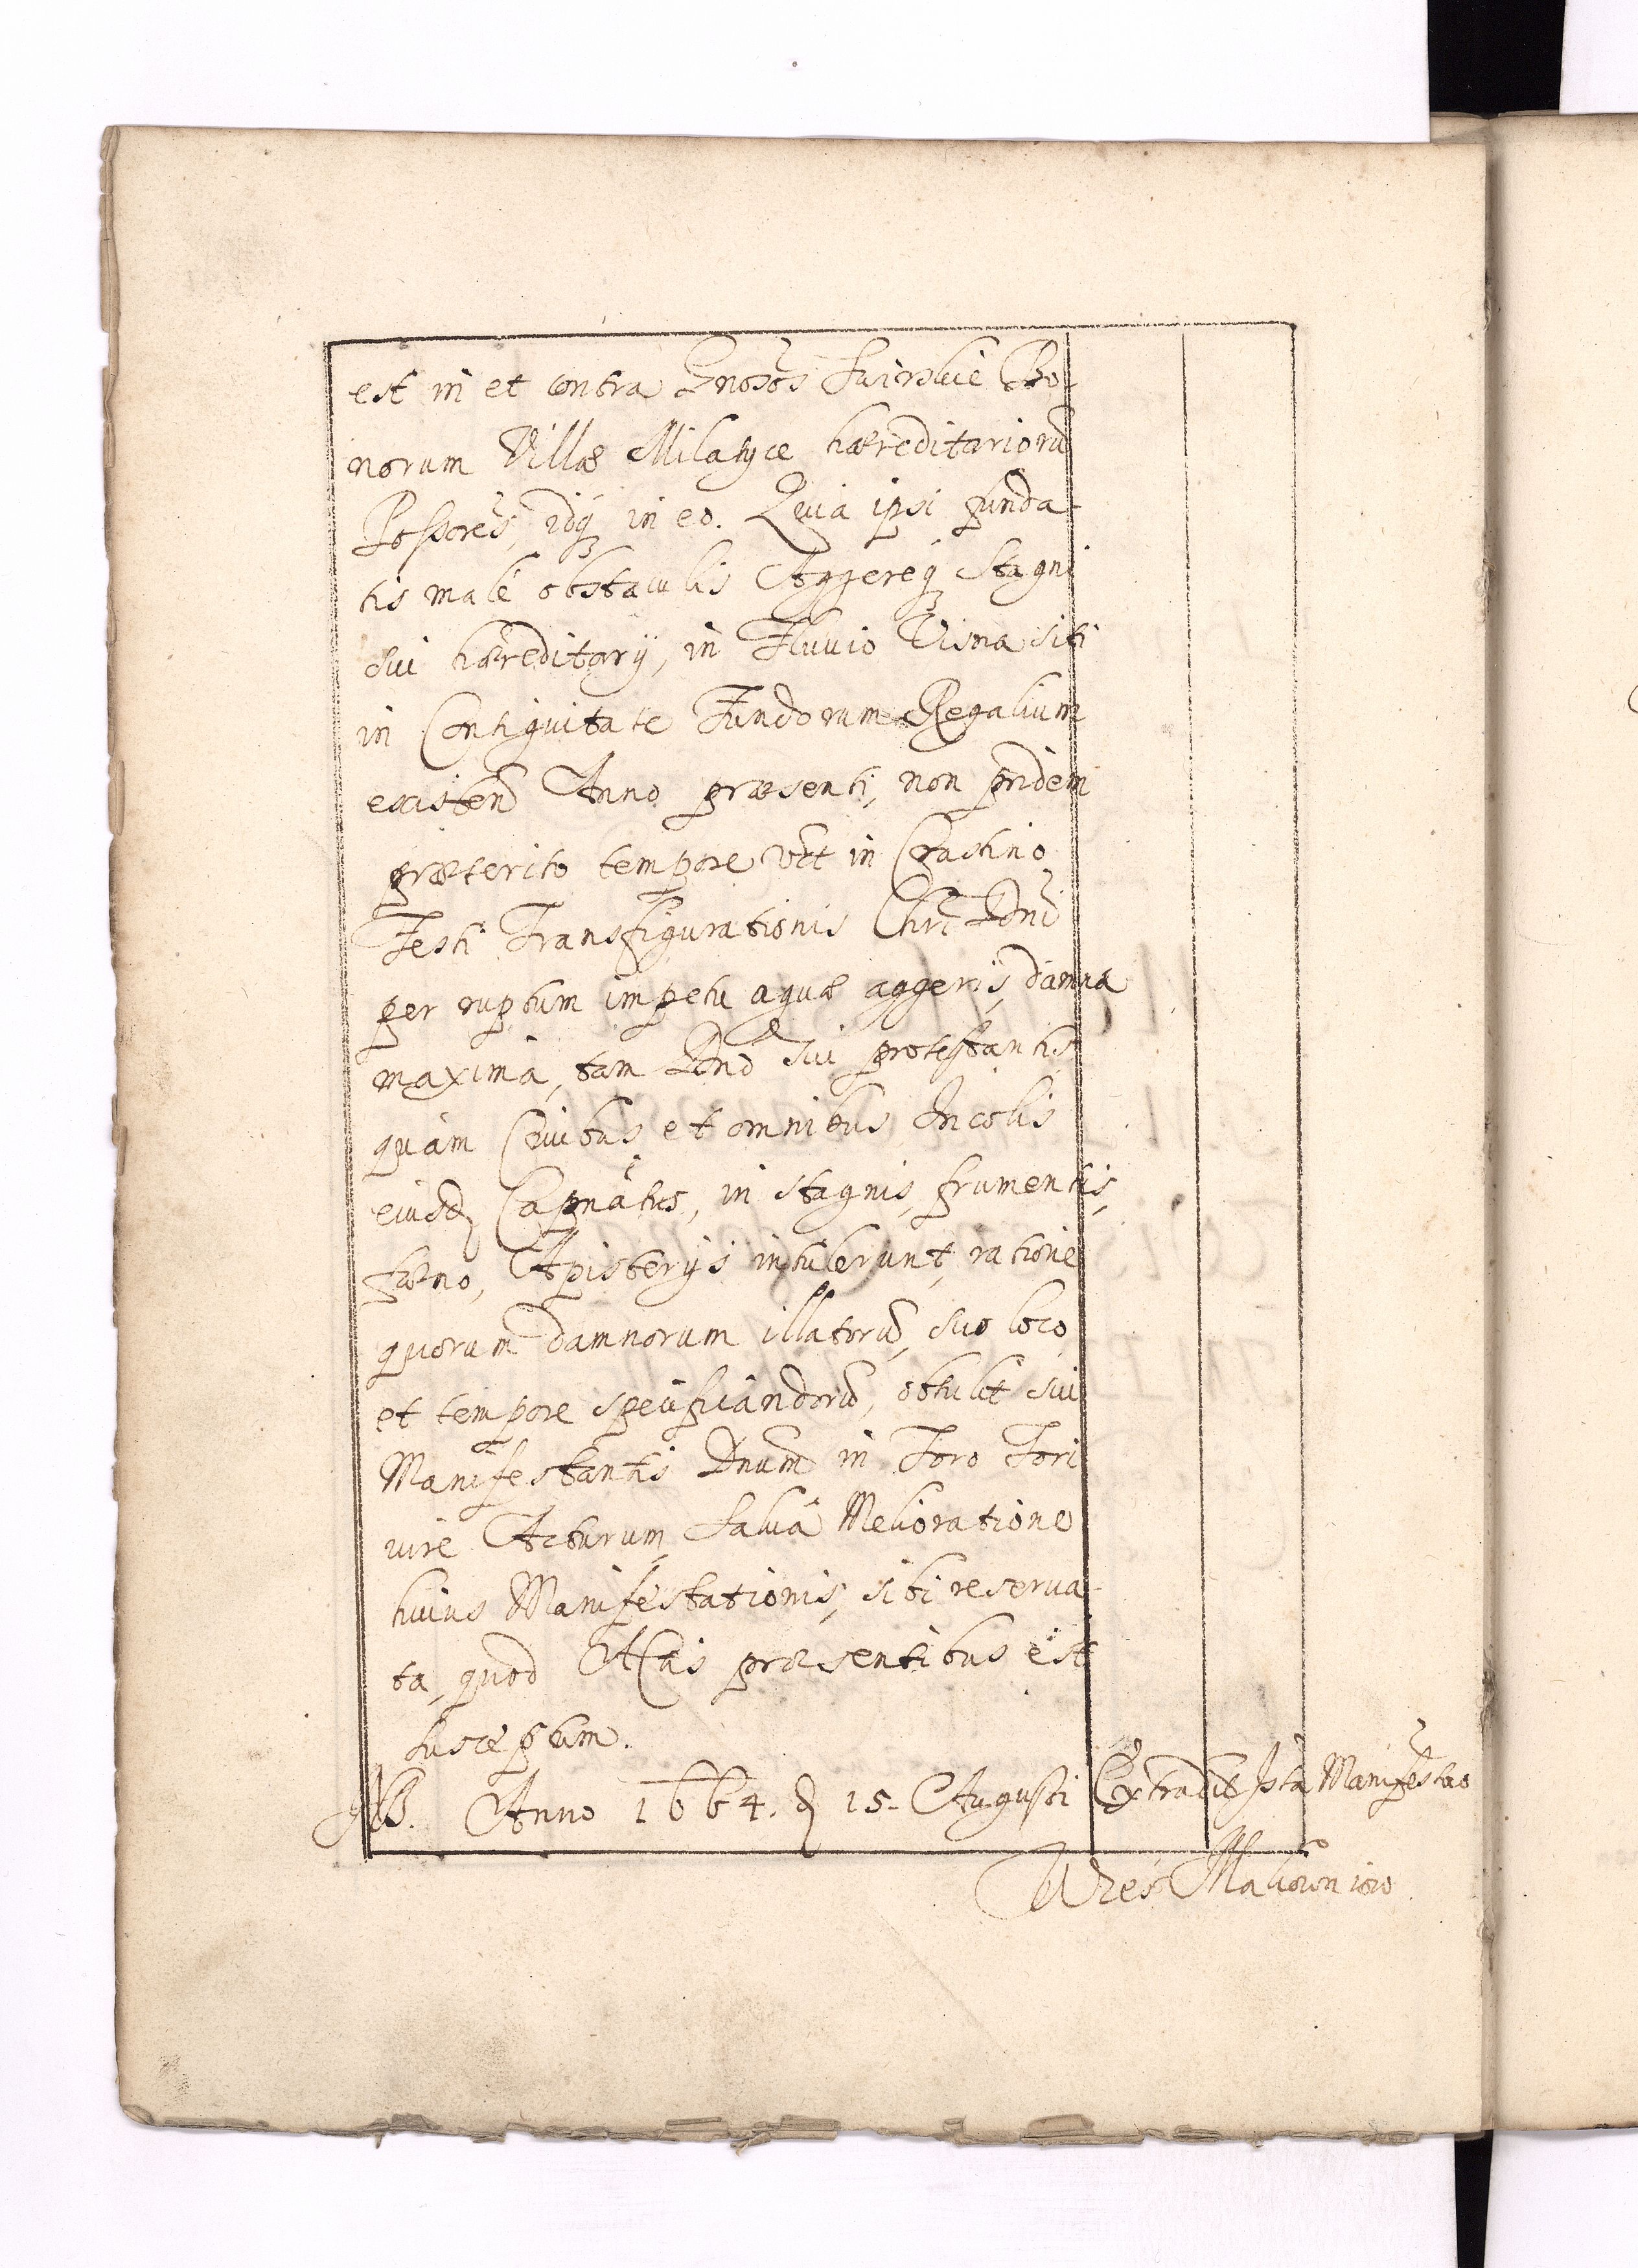 est in et contra Gnosos Suirskie Bo-
norum Villæ Milatyce hæreditarioru
Possores, idq in eo. Quia ipsi funda-
tis malé obstaculis Aggereq Stagni
sui hæreditarÿ, in Fluvio Visna siti
in Contiguitate Fundorum Regalium
existen Anno præsenti, non pridem
præterito tempore vtt in Crastino
Festi Transfigurationis Chri Dni
per ruptum impetu aquæ aggeris, damna
maxima, tam Dno sui protestantis
quàm Ciuibus et omnibus Incolis
eiusd Capnâtus, in stagnis, frumentis,
fæno, Apisterÿs intulerunt, ratione
quorum damnorum illatoru, suo loco
et tempore specificandoru, obtulit sui
Manifestantis Dnum in Foro Fori
iure Acturum, Salua Melioratione
huius Manifestationis, sibi reserua-
ta, quod Actis præsentibus est
Susceptum.
NB. Anno 1664. d 15. Augusti Extradit Ista Manifestao